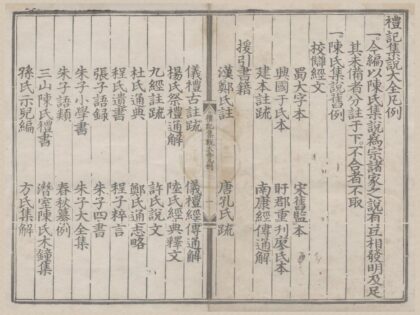 禮記集說大全凡例
一今編以陳氏集說爲宗諸家之說有互相發明及足
其未備者分註于下不合者不取
一陳氏集說舊例
校讎經文
蜀大字本 宋舊監本
興國于氏本 盱郡重刊廖氏本
建本註疏 南康經傳通解
援引書籍
漢鄭氏註 唐孔氏疏
儀禮古註疏 儀禮經傳通解
楊氏祭禮通解 陸氏經典釋文
九經註疏 許氏說文
杜氏通典 鄭氏通志略
程氏遺書 程子粹言
張子語錄 朱子四書
朱子小學書 朱子大全集
朱子語類 春秋纂例
三山陳氏禮書 潛室陳氏木鐘集
孫氏示兒編 方氏集解